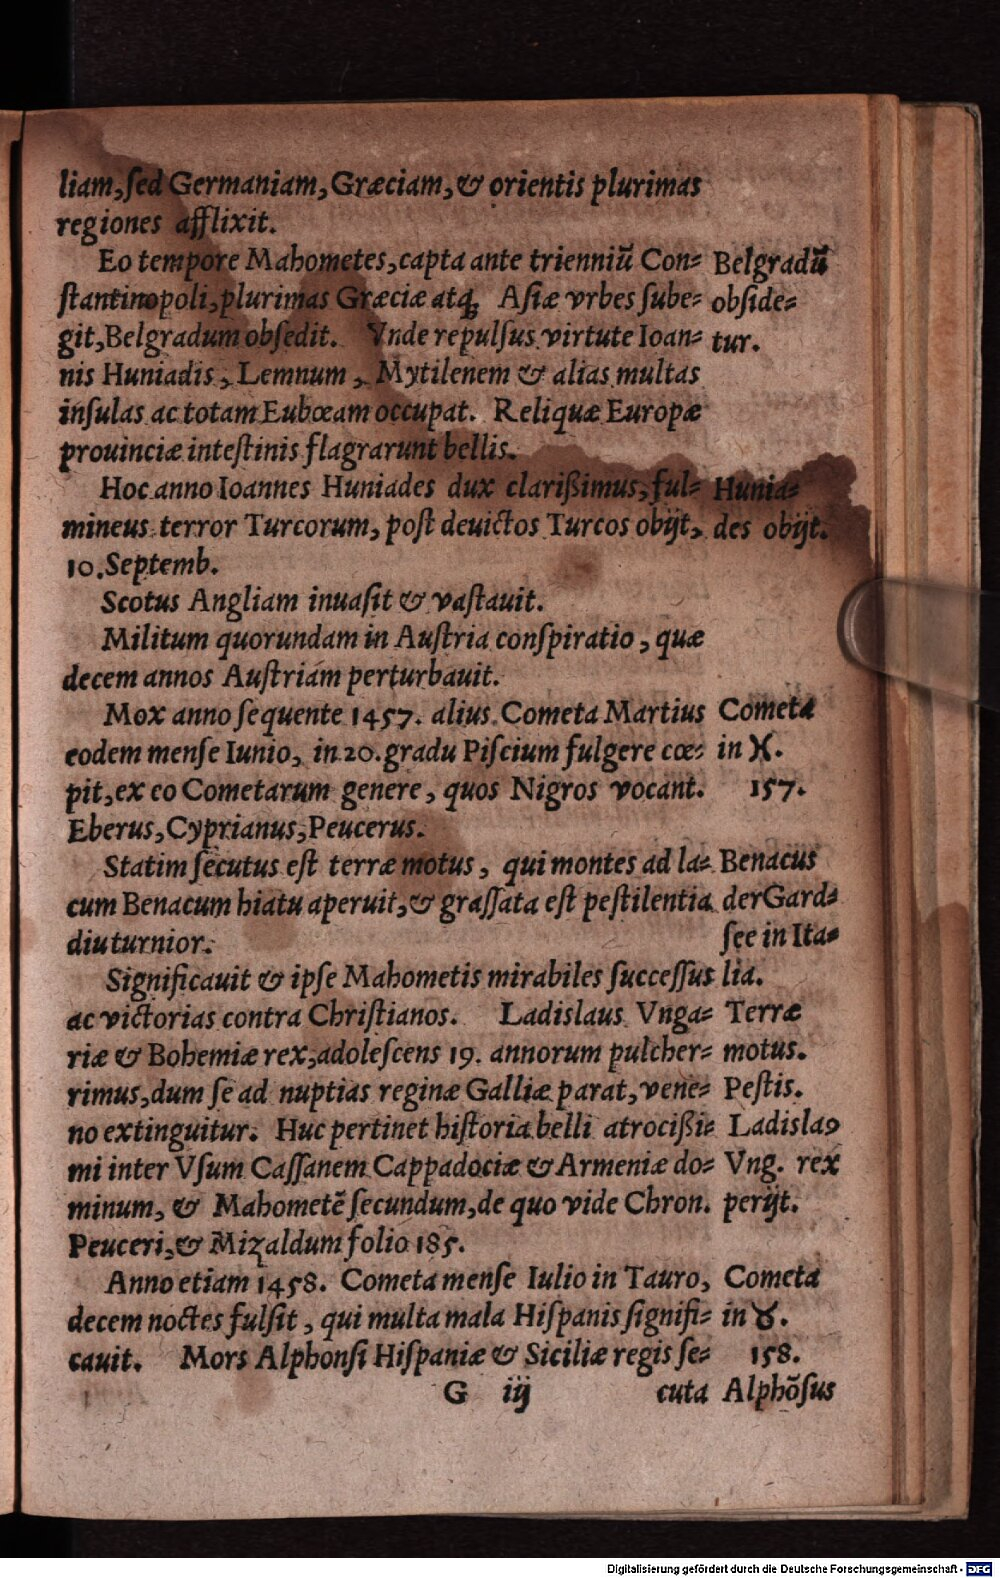 liam, sed Germaniam, Græciam, & orientis plurimas
regiones afflixit.
Eo tempore Mahometes, capta ante trienniũ Con=
stantinopoli, plurimas Græciæ atq; Asiæ vrbes sube=
git, Belgradum obsedit. Vnde repulsus virtute Ioan=
nis Huniadis, Lemnum, Mytilenem & alias multas
insulas ac totam Eubœam occupat. Reliquæ Europæ
prouinciæ intestinis flagrarunt bellis.
Belgradũ
obside=
tur.
Hoc anno Ioannes Huniades dux clarißimus, ful=
mineus terror Turcorum, post deuictos Turcos obijt,
10. Septemb.
Hunia=
des obijt.
Scotus Angliam inuasit & vastauit.
Militum quorundam in Austria conspiratio, quæ
decem annos Austriam perturbauit.
Mox anno sequente 1457. alius Cometa Martius
eodem mense Iunio, in 20. gradu Piscium fulgere cœ=
pit, ex eo Cometarum genere, quos Nigros vocant.
Eberus, Cyprianus, Peucerus.
Cometa
in ♓.
157.
Statim secutus est terræ motus, qui montes ad la=
cum Benacum hiatu aperuit, & grassata est pestilentia
diuturnior.
Benacus
der Gard=
see in Ita=
lia.
Significauit & ipse Mahometis mirabiles successus
ac victorias contra Christianos. Ladislaus Vnga=
riæ & Bohemiæ rex, adolescens 19. annorum pulcher=
rimus, dum se ad nuptias reginæ Galliæ parat, vene=
no extinguitur. Huc pertinet historia belli atrocißi=
mi inter Vsum Cassanem Cappadociæ & Armeniæ do=
minum, & Mahometẽ secundum, de quo vide Chron.
Peuceri, & Mizaldum folio 185.
Terræ
motus.
Pestis.
Ladislaꝰ
Vng. rex
perijt.
Anno etiam 1458. Cometa mense Iulio in Tauro,
decem noctes fulsit, qui multa mala Hispanis signifi=
cauit. Mors Alphonsi Hispaniæ & Siciliæ regis se=
Cometa
in ♉.
158.
Alphõsus
G iij cuta
Digitalisierung gefördert durch die Deutsche Forschungsgemeinschaft - DFG